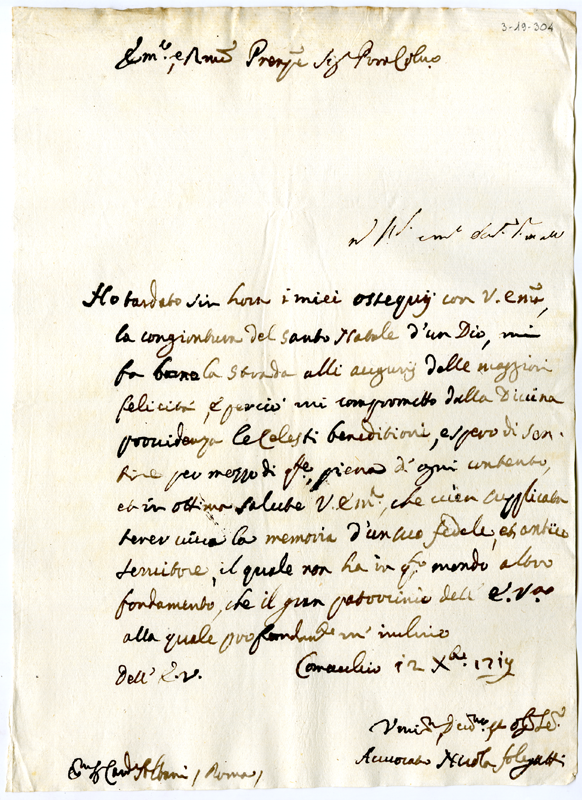 3-19-304
Em.º, e R.mo Prenpe Sig.r Pron Colmo
Ho tardato sin hora i miei ossequij con V. Em.a,
la congiontura del santo Natale d'un Dio, mi
fa la strada alli augurij delle maggiori
felicità, e perciò mi comprometto dalla Divina
providenza le Celesti beneditioni, e spero di sen-
tire per mezzo di qste, piena d'ogni contento,
et in ottima salute V. Em.a, che vien supplicata
tener viva la memoria d'un suo fedele, et antico
servitore, il quale non ha in qto mondo altro
fondamento, che il gran patrocinio dell' E. V.ra
alla quale profondamte m' inchino
dell' E. V. Comacchio 12 Xbre 1719
Avvocato Nicola
Card Albani, Roma,